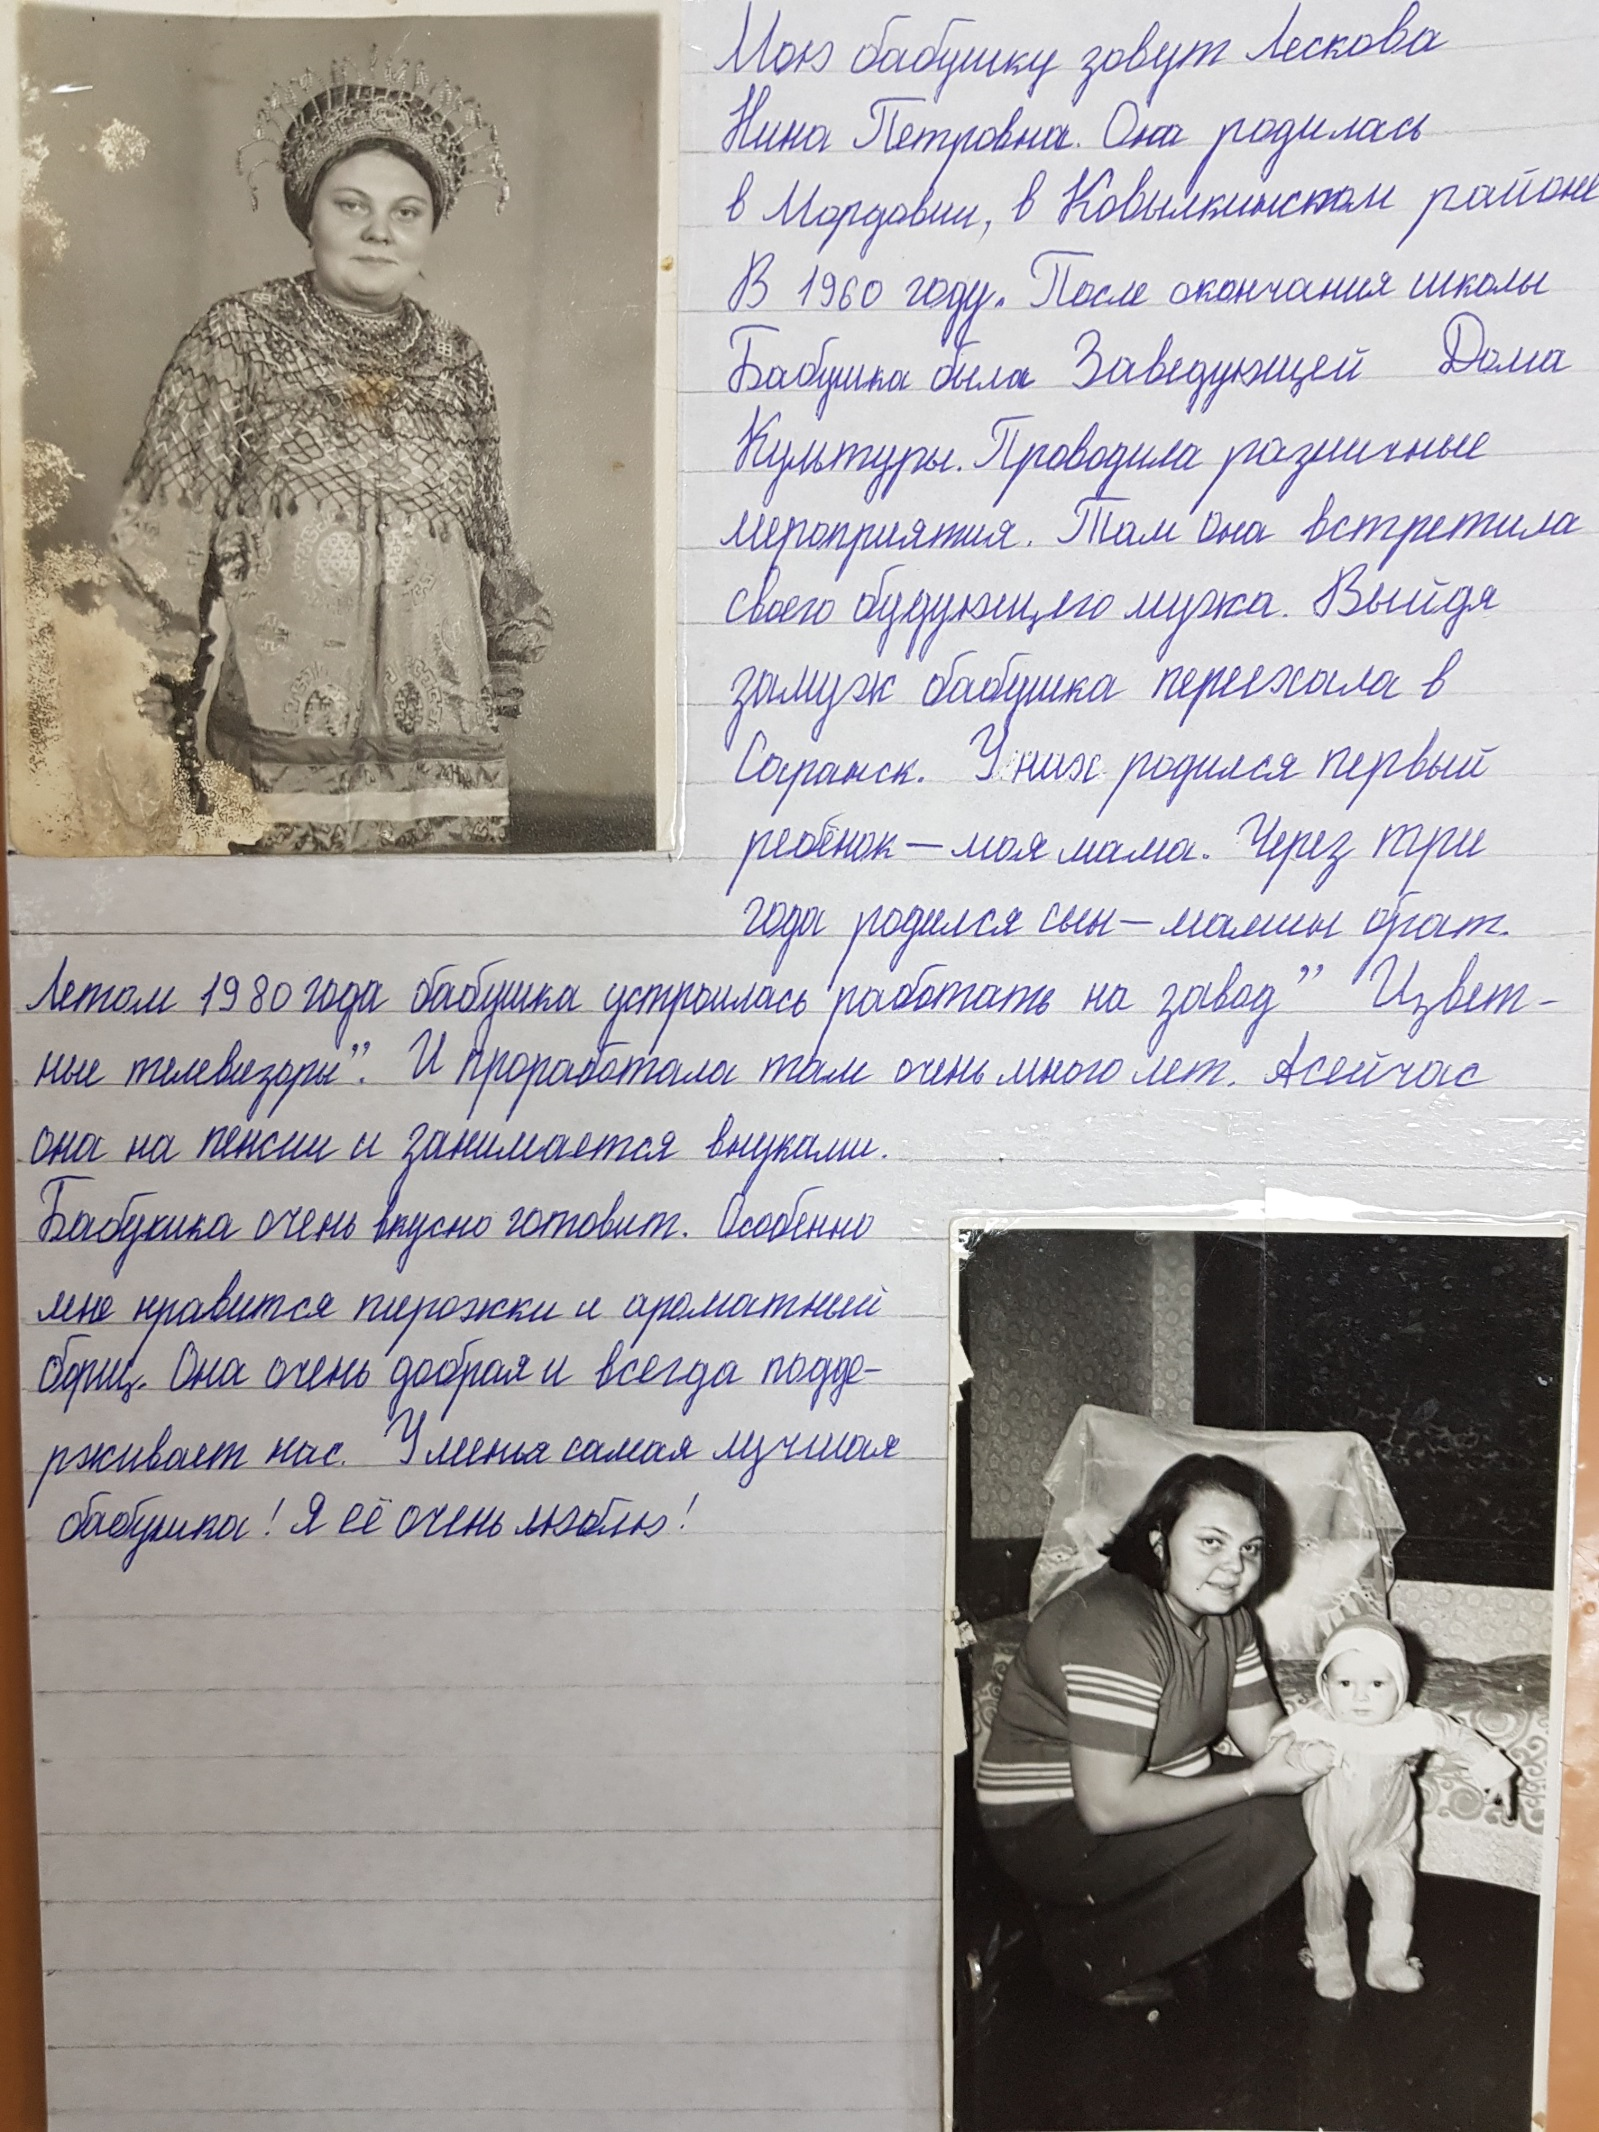 Мою бабушку зовут Лескова
Нина Петровна. Она родилась
в Мордовии, в Ковылкинском районе
В 1960 году. После окончания школы
Бабушка была Заведующей Дома
Культуры. Проводила различные
мероприятия. Там она встретила
своего будующего мужа. Выйдя
замуж бабушка переехала в
Саранск. У них родился первый
ребёнок – моя мама. Через три
года родился сын – мамин брат.
Летом 1980 года бабушка устроилась работать на завод " Цвет-
ные телевизоры". И проработала там очень много лет. А сейчас
она на пенсии и занимается внуками.
Бабушка очень вкусно готовит. Особенно
мне нравится пирожки и ароматный
борщ. Она очень добрая и всегда подде-
рживает нас. У меня самая лучшая
бабушка! Я её очень люблю!